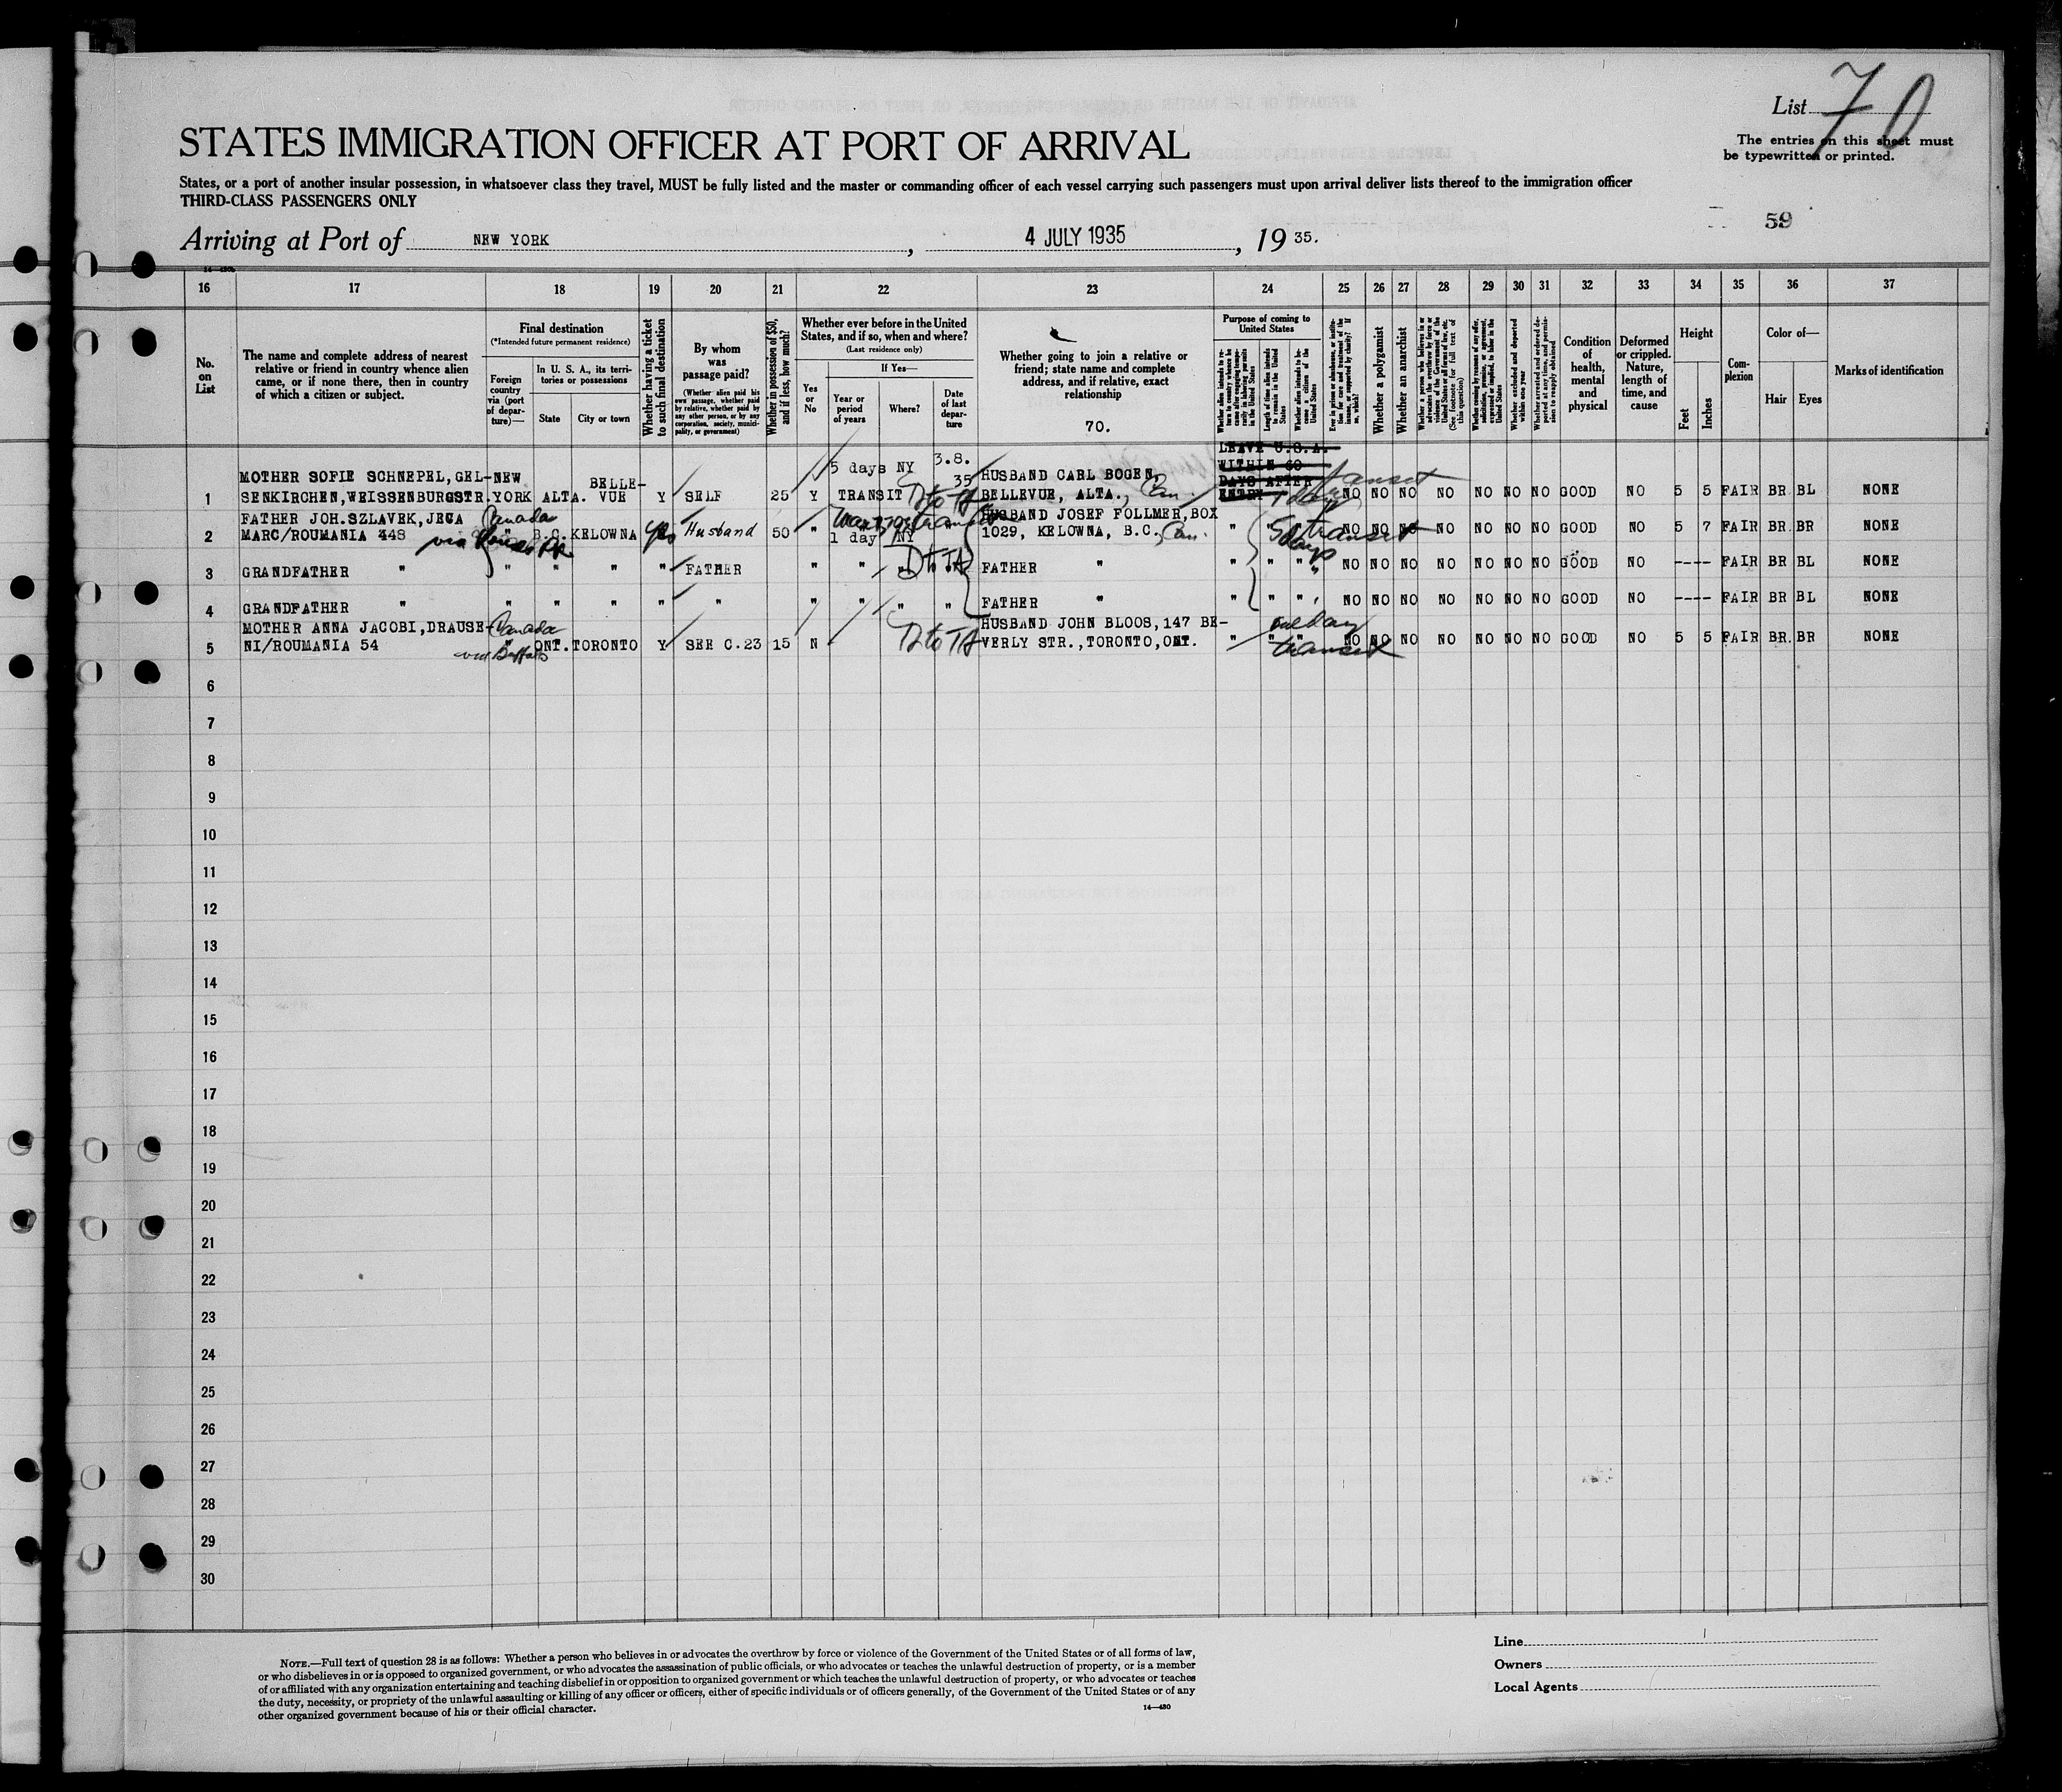 List 70
The entries on this sheet must
be typewritten or printed.
STATES IMMIGRATION OFFICER AT PORT OF ARRIVAL
States, or a port of another insular possession, in whatsoever class they travel, MUST be fully listed and the master or commanding officer of each vessel carrying such passengers must upon arrival deliver lists thereof to the immigration officer
THIRD-CLASS PASSENGERS ONLY
59
Arriving at Port of NEW YORK, 4 JULY 1935, 19 35.
16 17 18 19 20 21 22 23 24 25 26 27 28 29 30 31 32 33 34 35 36 37
No. on List
The name and complete address of nearest
relative or friend in country whence alien
came, or if none there, then in country
of which a citizen or subject.
Final destination
(*Intended future permanent residence)
Foreign country via (port of departure)—
In U. S. A., its territories or possessions
State
City or town
Whether having a ticket to such final destination
By whom was passage paid?
(Whether alien paid his own passage, whether paid by relative, whether paid by any other person, or by any corporation, society, municipality, or government)
Whether in possession of $50, and if less, how much?
Whether ever before in the United
States, and if so, when and where?
(Last residence only)
Yes or No
If Yes—
Year or period of years
Where?
Date of last departure
Whether going to join a relative or
friend; state name and complete
address, and if relative, exact
relationship
70.
Purpose of coming to United States
Length of time alien intends to remain in the United States
Whether alien intends to become a citizen of the United States
Whether a polygamist
Whether an anarchist
Condition of health, mental and physical
Deformed or crippled. Nature, length of time, and cause
Height
Feet
Inches
Complexion
Color of—
Hair
Eyes
Marks of identification
LEAVE U.S.A.
WITHIN 60
DAYS AFTER
ENTRY
MOTHER SOFIE SCHNEPEL, GEL- NEW BELLE- 5 days NY 3.8. 35 HUSBAND CARL BOGEN,
1 SENKIRCHEN, WEISSENBURGSTR. YORK ALTA. VUE Y SELF 25 Y TRANSIT D to TA BELLEVUE, ALTA., Can. transit NO NO NO NO NO NO NO GOOD NO 5 5 FAIR BR BL NONE
FATHER JOH.SZLAVEK, JECA Canada HUSBAND JOSEF FOLLMER, BOX
2 MARC/ROUMANIA 448 via " B.C. KELOWNA Yes Husband 50 " 1 day NY 1029, KELOWNA, B.C. Can. " " 5 days transit NO NO NO NO NO NO NO GOOD NO 5 7 FAIR BR BR NONE
3 GRANDFATHER " " " " " FATHER " " " D to TA FATHER " " " " " NO NO NO NO NO NO NO GOOD NO ---- FAIR BR BL NONE
4 GRANDFATHER " " " " " " " " " " FATHER " " " " NO NO NO NO NO NO NO GOOD NO ---- FAIR BR BL NONE
MOTHER ANNA JACOBI, DRAUSE- Canada HUSBAND JOHN BLOOS, 147 BE- one day
5 NI/ROUMANIA 54 via Buffalo " ONT. TORONTO Y SEE C.23 15 N D to TA VERLY STR., TORONTO, ONT. " " " transit NO NO NO NO NO NO NO GOOD NO 5 5 FAIR BR BR NONE
6
7
8
9
10
11
12
13
14
15
16
17
18
19
20
21
22
23
24
25
26
27
28
29
30
NOTE.—Full text of question 28 is as follows: Whether a person who believes in or advocates the overthrow by force or violence of the Government of the United States or of all forms of law,
or who disbelieves in or is opposed to organized government, or who advocates the assassination of public officials, or who advocates or teaches the unlawful destruction of property, or is a member
of or affiliated with any organization entertaining and teaching disbelief in or opposition to organized government or which teaches the unlawful destruction of property, or who advocates or teaches
the duty, necessity, or propriety of the unlawful assaulting or killing of any officer or officers, either of specific individuals or of officers generally, of the Government of the United States or of any
other organized government because of his or their official character.
14—430
Line
Owners
Local Agents